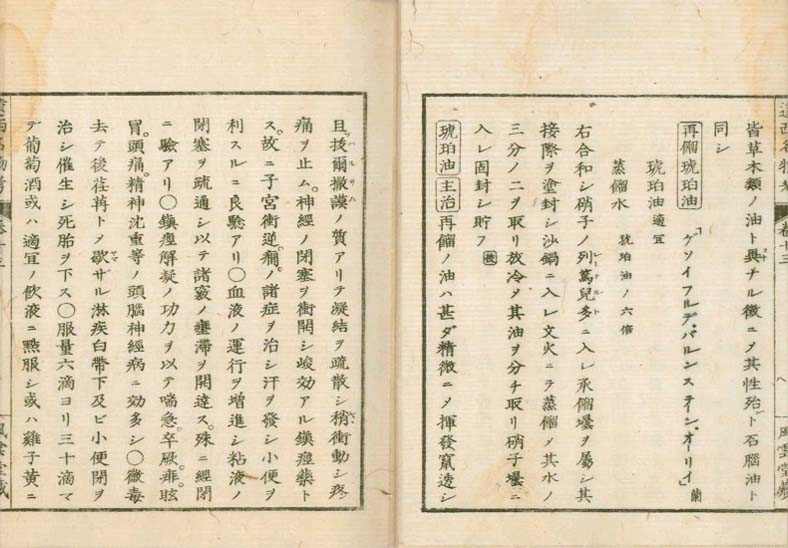 皆草木類ノ油ト異チル徴ニ〆其性殆ド石腦油ト
同シ
再餾琥珀油 「ゲソイフルデ、バルンステイン、オーリイ」蘭
琥珀油適宜
蒸餾水 琥珀油ノ六倍
右合和シ硝子ノ列篤兒多ニ入レ承餾壜ヲ属シ其
接際ヲ塗封シ沙鍋ニ入レ文火ニテ蒸餾〆其水ノ
三分ノ二ヲ取リ放冷〆其油ヲ分チ取リ硝子壜ニ
入レ固封シ貯フ
琥珀油 主治 再餾ノ油ハ甚ダ精微ニ〆揮發竄透シ
且拔爾撒謨ノ質アリテ凝結ヲ疏散シ稍衝動シ疼
痛ヲ止ム。神經ノ閉塞ヲ衝開シ峻効アル鎮痙藥ト
ス。故ニ子宮衝逆。癇ノ諸症ヲ治シ汗ヲ發シ小便ヲ
利スルニ良驗アリ〇血液ノ運行ヲ增進シ粘液ノ
閉塞ヲ疏通シ以テ諸竅ノ壅滞ヲ開達ス。殊ニ經閉
ニ驗アリ〇鎮痙解凝ノ功力ヲ以テ喘急。卒厥。痱。眩
冒。頭痛。精神沈重等ノ頭腦神經病ニ効多シ〇黴毒
去テ後荏苒ト〆歇ザル淋疾白帶下及ビ小便閉ヲ
治シ催生シ死胎ヲ下ス〇服量六滴ヨリ三十滴マ
デ葡萄酒或ハ適宜ノ飲液ニ㸃服シ或ハ雞子黄ニ
卷十三
八
風雲堂藏
風雲堂藏